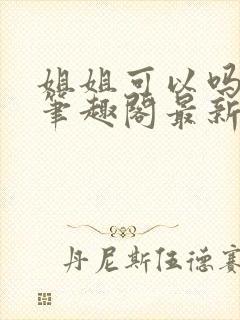 姐姐可以吗
笔趣阁最新
丹尼斯伍德赛